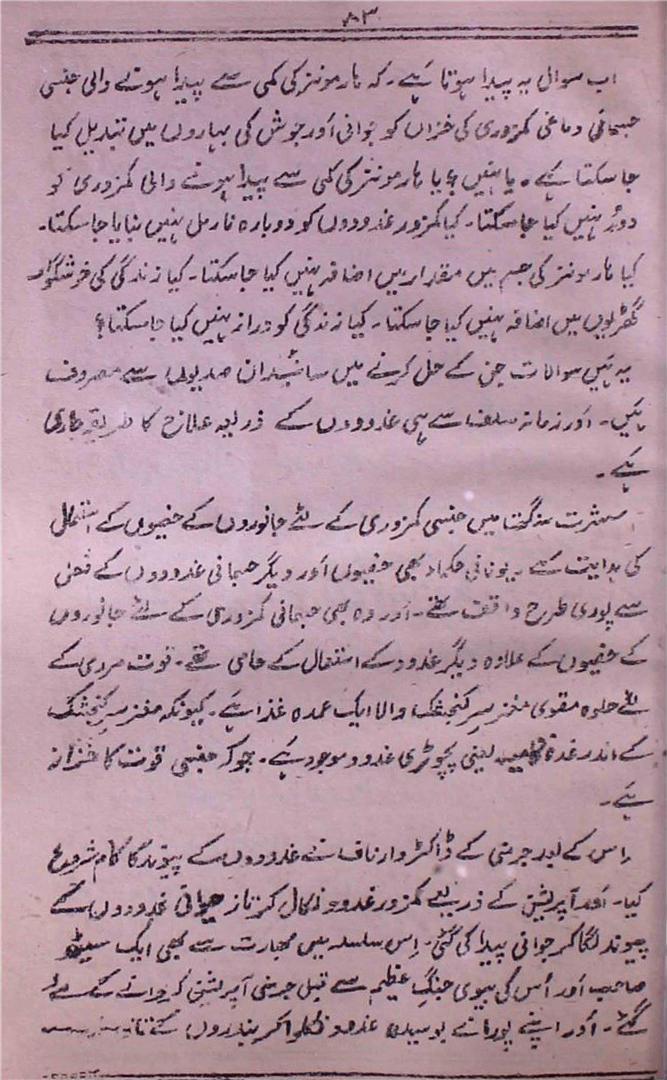 ۸۳
اب سوال یہ پیدا ہوتا ہے۔ کہ ہارمونز کی کمی سے پیدا ہونے والی جنسی
جسمانی دماغی کمزوری کی خزاں کو جوانی اور جوش کی بہاروں میں تبدیل کیا
جا سکتا ہے۔ یا نہیں؟ یا ہارمونز کی کمی سے پیدا ہونے والی کمزوری کو
دور نہیں کیا جا سکتا۔ کیا کمزور غدودوں کو دوبارہ نارمل نہیں بنایا جا سکتا۔
کیا ہارمونز کی جسم میں مقدار میں اضافہ نہیں کیا جا سکتا۔ کیا زندگی کی خوشگوار
گھڑیوں میں اضافہ نہیں کیا جا سکتا۔ کیا زندگی کو دراز نہیں کیا جا سکتا؟
یہ ہیں سوالات جن کے حل کرنے میں سائنسدان صدیوں سے مصروف
ہیں۔ اور زمانہ سلف سے ہی غدودوں کے ذریعہ علاج کا طریقہ جاری
ہے۔
سشرت سنگھتا میں جنسی کمزوری کے لئے جانوروں کے خصیوں کے استعمال
کی ہدایت ہے۔ یونانی حکماء بھی خصیوں اور دیگر جسمانی غدودوں کے فعل
سے پوری طرح واقف تھے۔ اور وہ بھی جسمانی کمزوری کے لئے جانوروں
کے خصیوں کے علاوہ دیگر غدود کے استعمال کے حامی تھے۔ قوت مردی کے
لئے حلوہ مقوی مغز سر کنجشک والا ایک عمدہ غذا ہے۔ کیونکہ مغز سر کنجشک
کے اندر غدہ یعنی پچوٹری غدود موجود ہے۔ جو کہ جنسی قوت کا خزانہ
ہے۔
اس کے بعد جرمنی کے ڈاکٹر وارناف نے غدودوں کے پیوند کا کام شروع
کیا۔ اور آپریشن کے ذریعے کمزور غدود نکال کر تاز حیوانی غدودوں کے
پیوند لگا کر جوانی پیدا کی گئی۔ اس سلسلہ میں بھارت سے بھی ایک سیٹھ
صاحب اور اُس کی بیوی جنگ عظیم سے قبل جرمنی آپریشن کروانے کے لئے
گئے۔ اور اپنے پورانے بوسیدہ غدود نکلوا کر بندروں کے تازہ